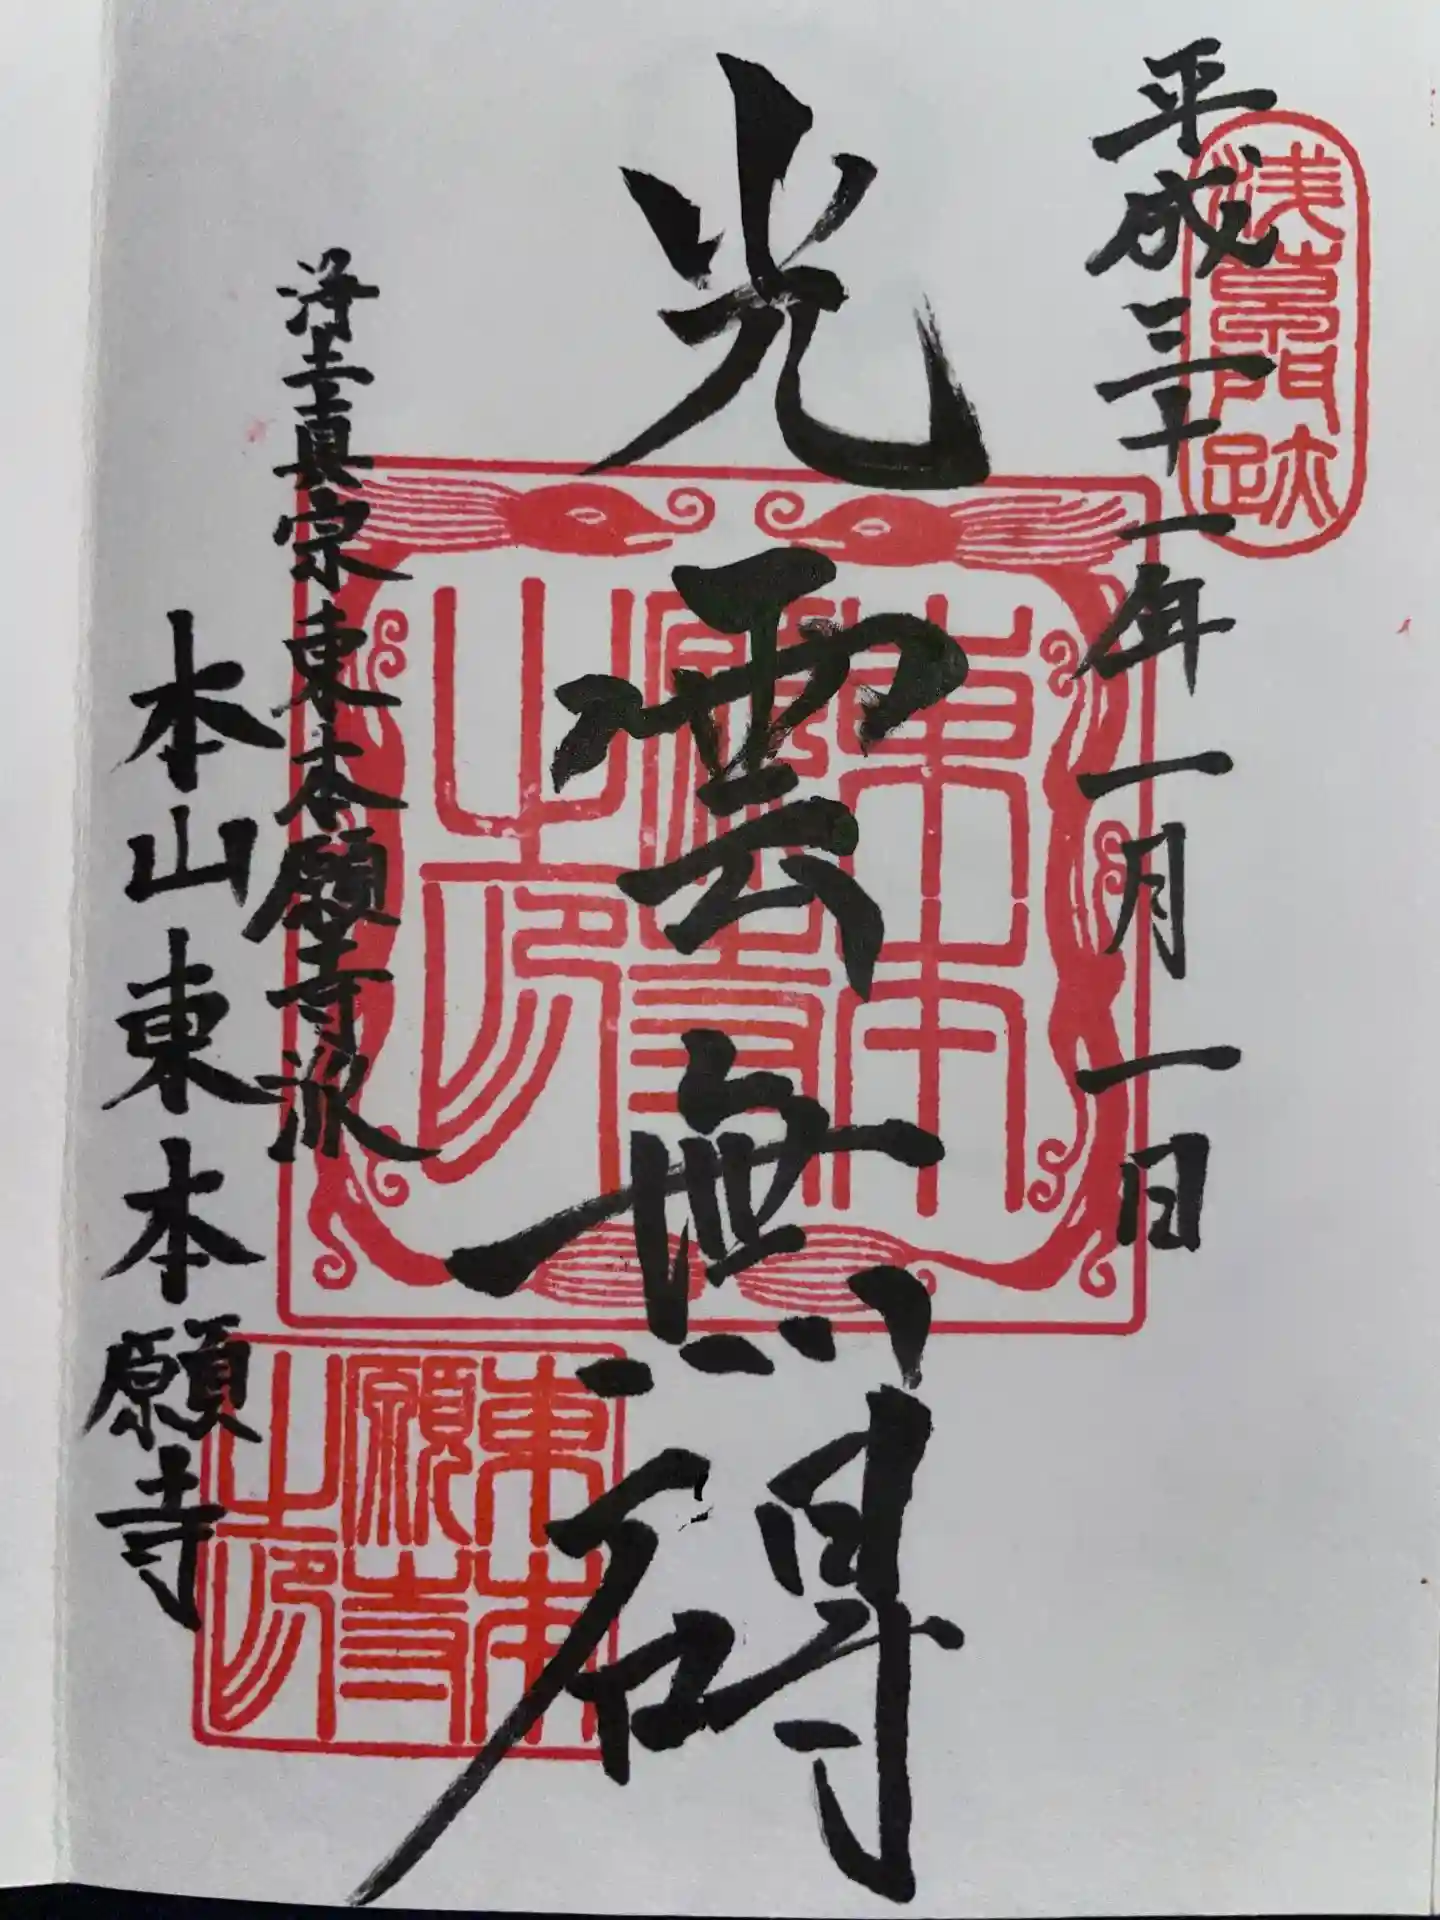 平成三十一年一月一日
浅草門跡
光雲無碍
東本願寺之印
浄土真宗東本願寺派
本山東本願寺
東本願寺之印